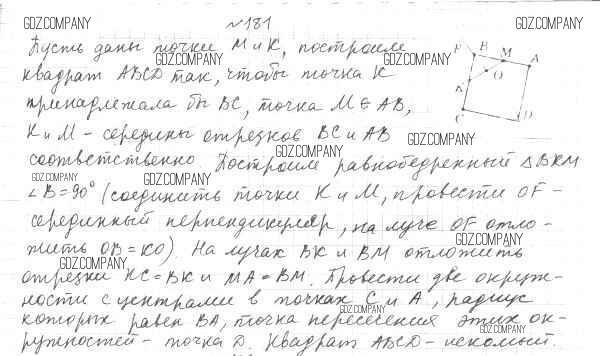 №181
GDZ.COMPANY
GDZ.COMPANY
Пусть даны точки M и K, построим
GDZ.COMPANY
GDZ.COMPANY
квадрат ABCD так, чтобы точка K
GDZ.COMPANY
принадлежала бы BC, точка M ∈ AB,
K и M - середины отрезков BC и AB
GDZ.COMPANY
соответственно. Построим равнобедренный △BKM
GDZ.COMPANY
GDZ.COMPANY
∠B = 90° (соединить точки K и M, провести OF -
GDZ.COMPANY
серединный перпендикуляр, на луче OF отло-
жить OB = KO). На лучах BK и BM отложить
GDZ.COMPANY
GDZ.COMPANY
отрезки KC = BK и MA = BM. Провести две окруж-
ности с центрами в точках C и A, радиус
которых равен BA, точка пересечения этих ок-
GDZ.COMPANY
ружностей - точка D. Квадрат ABCD - искомый.
GDZ.COMPANY
GDZ.COMPANY
F
B
M
A
O
K
C
D